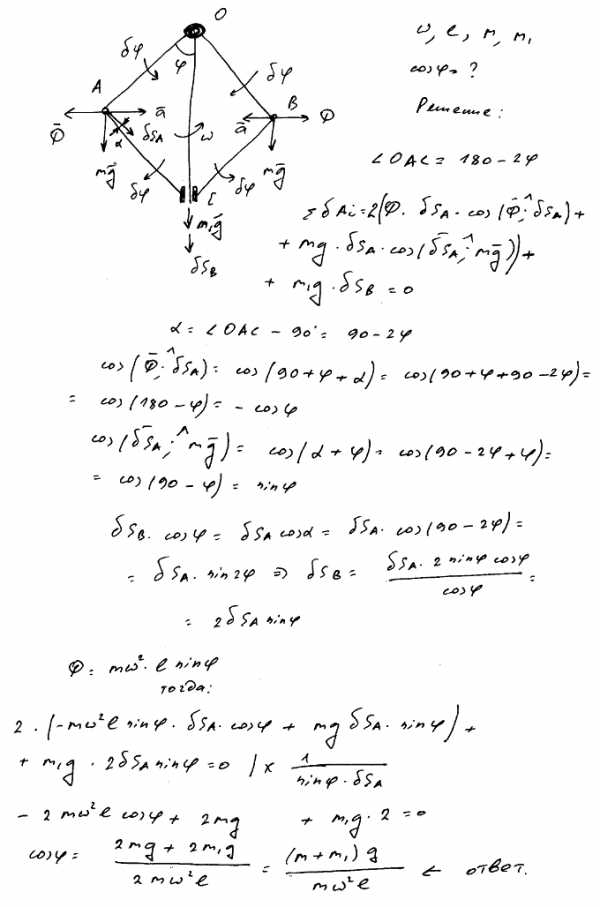 O
ω, ℓ, m, m₁
cosφ = ?
Решение:
δφ
φ
δφ
A
B
Φ̄
ā
ā
Φ
α
δS_A
ω
mḡ
mḡ
δφ
δφ
C
m₁ḡ
δS_B
∠OAC = 180 - 2φ
Σ δAi = 2(Φ · δS_A · cos(Φ̄;^δS_A) +
+ mg · δS_A · cos(δS̄_A;^mḡ)) +
+ m₁g · δS_B = 0
α = ∠OAC - 90° = 90 - 2φ
cos(Φ̄;^δS_A) = cos(90 + φ + α) = cos(90 + φ + 90 - 2φ) =
= cos(180 - φ) = - cosφ
cos(δS̄_A;^mḡ) = cos(α + φ) = cos(90 - 2φ + φ) =
= cos(90 - φ) = sinφ
δS_B · cosφ = δS_A cosα = δS_A · cos(90 - 2φ) =
= δS_A · sin2φ ⇒ δS_B = (δS_A · 2 sinφ cosφ)/cosφ =
= 2δS_A sinφ
Φ = mω² · ℓ sinφ
тогда:
2 · (-mω²ℓ sinφ · δS_A · cosφ + mg δS_A · sinφ) +
+ m₁g · 2δS_A sinφ = 0 | × 1/(sinφ · δS_A)
- 2mω²ℓ cosφ + 2mg + m₁g · 2 = 0
cosφ = (2mg + 2m₁g)/(2mω²ℓ) = ((m + m₁)g)/(mω²ℓ) ← ответ.